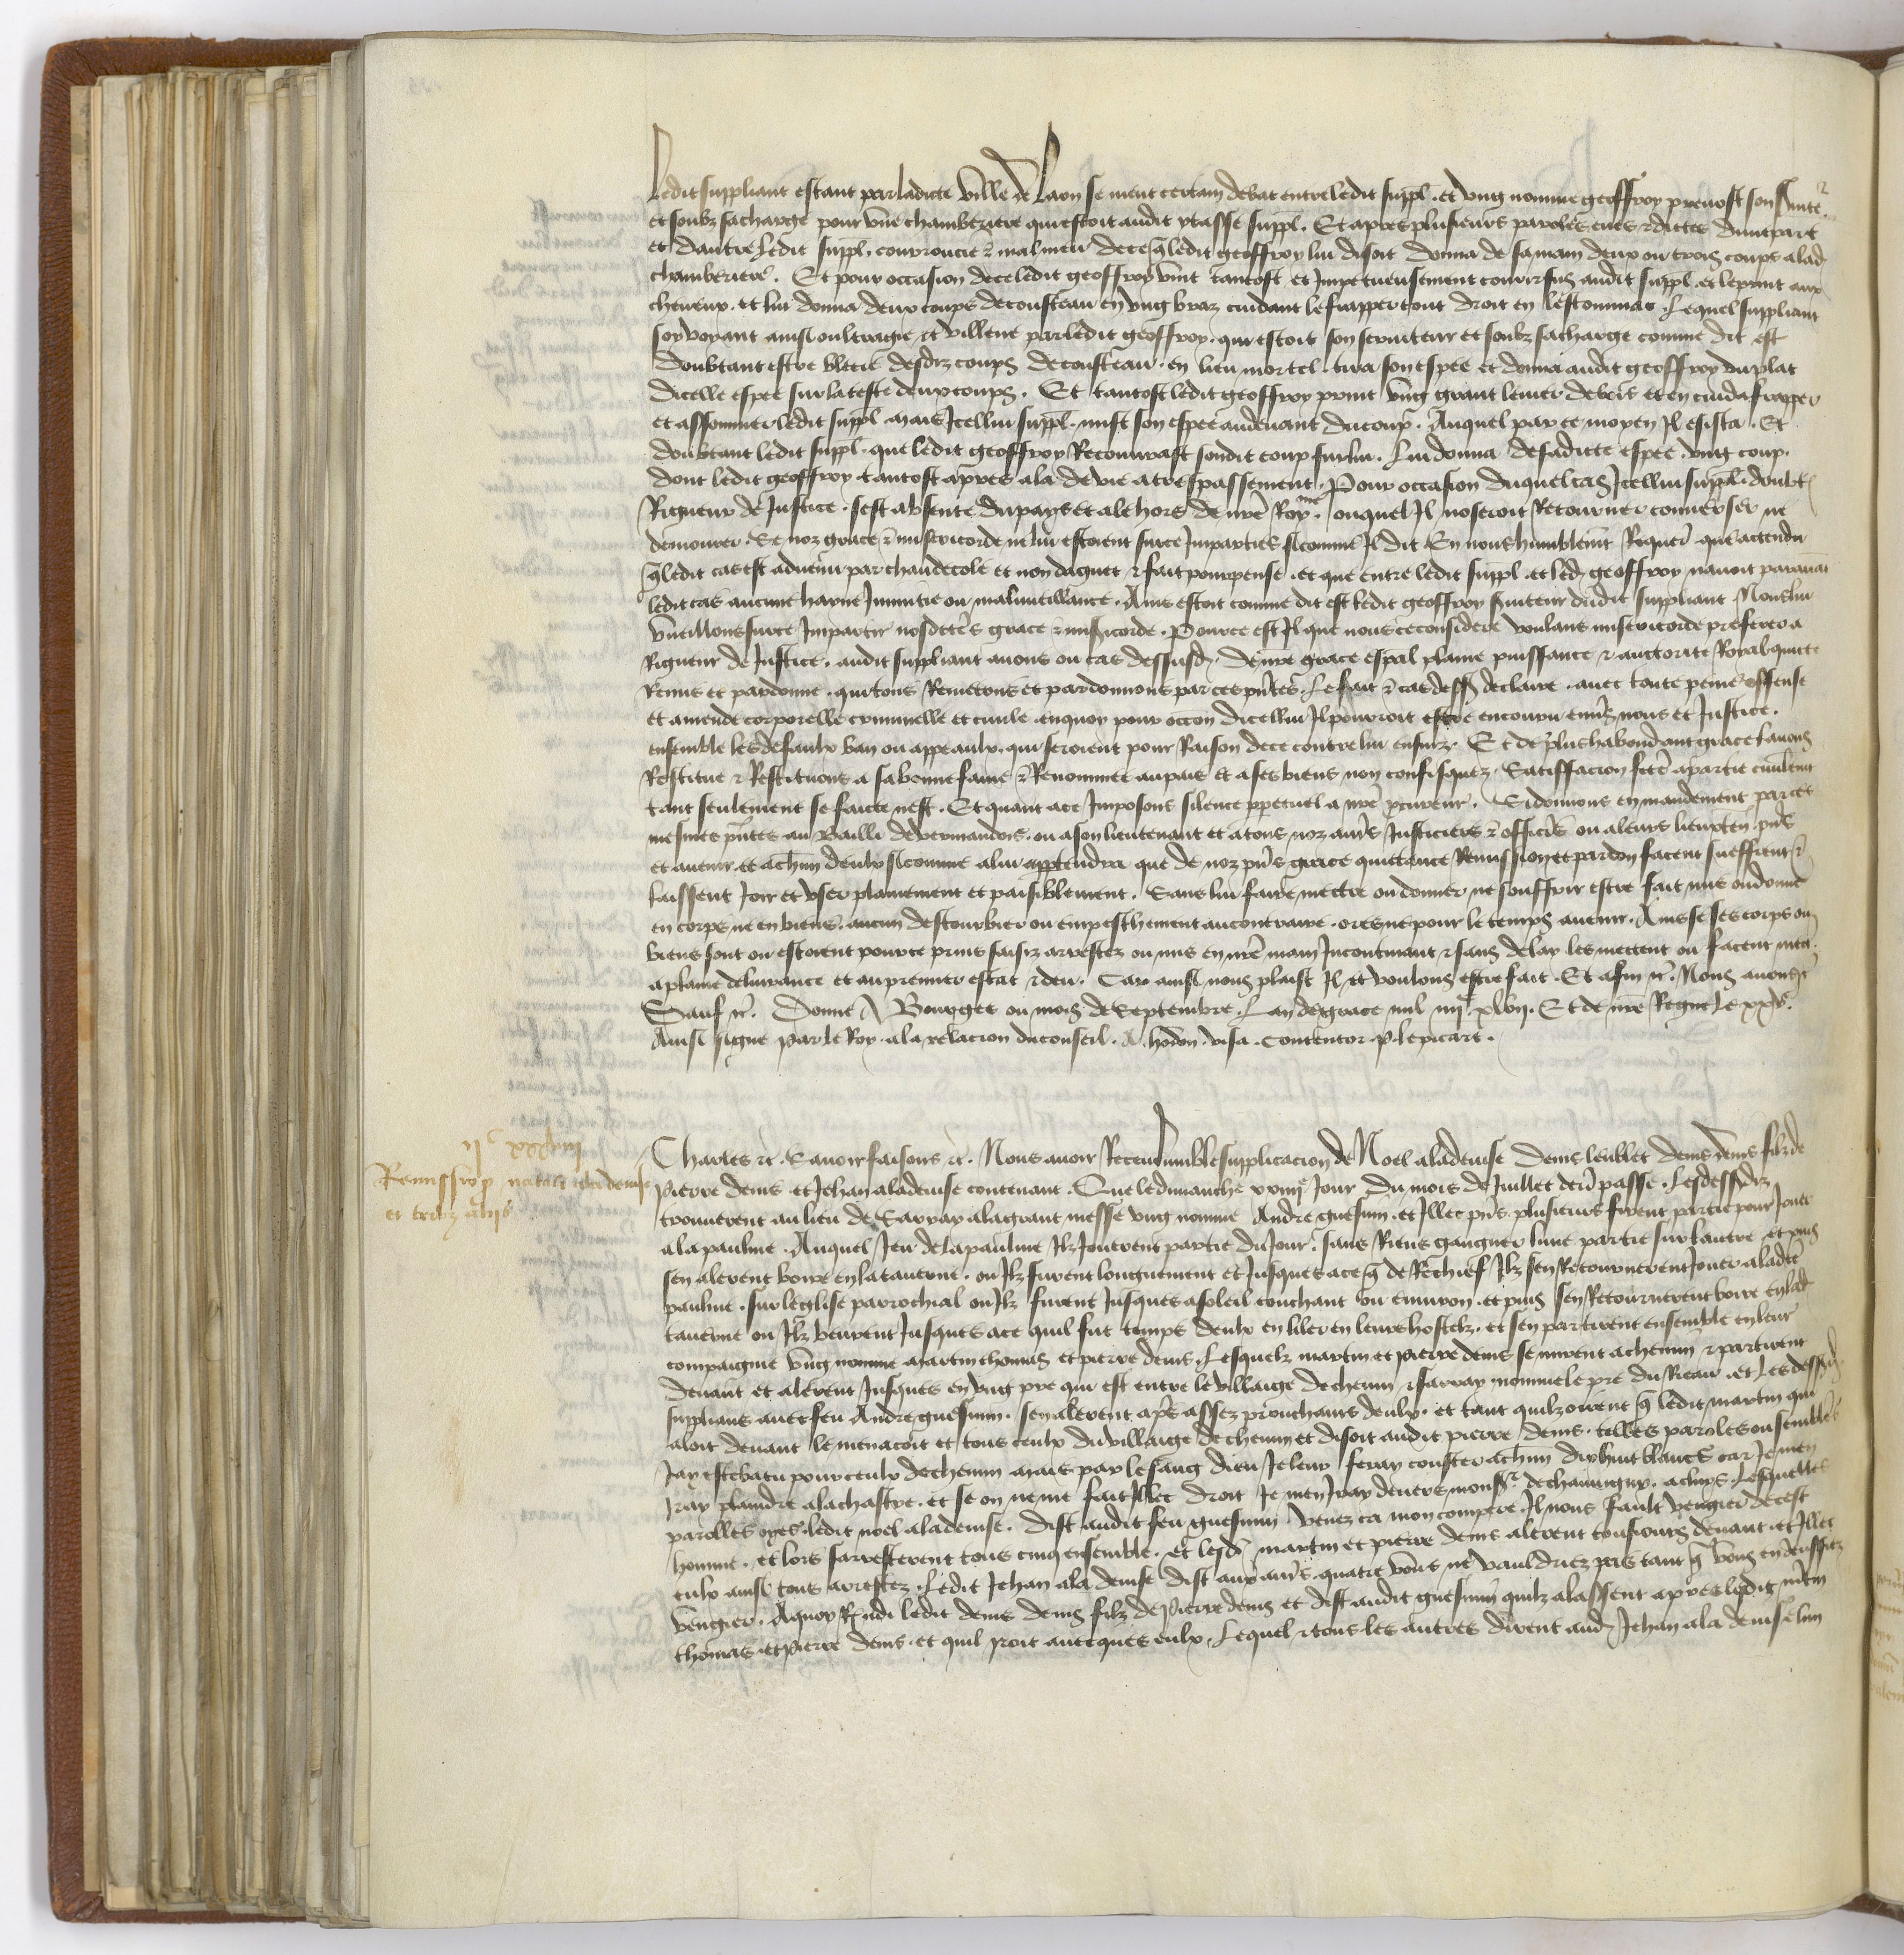 Ledit suppliant estant par ladicte ville de Laon se meut certain debat entre ledit suppl. et ung nomme geoffroy prevost son
et soubz sa charge pour une chamberiere qui estoit audit ytasse suppl. Et apres plusieurs paroles eues et dictes dunt part
et dautre Ledit suppl. couroucie et mal meu de ce q ledit geoffroy lui disoit donna de sa main deux ou trois coups a lad
chamberiere. Et pour occasion de ce ledit geoffroy vint tantost et Impetueusement courir sus audit suppl. et le print aux
cheveux. et lui donna deux coups de cousteau en ung braz cuidant le frapper tout droit en lestommac. Lequel suppliant
soy voyant ainsi oultragie et villene par ledit geoffroy. qui estoit son serviteur et soubz sa charge comme dit est
doubtant estre blecie desdiz coups de cousteau. en lieu mortel. tira son espee et donna audit geoffroy du plat
dicelle espee sur la teste deux coups. Et tantost ledit geoffroy print ung grant levier de bois et en cuida frapper
et assommer ledit suppl mais Icellui suppl. mist son espee audevant du coup. Auquel par ce moyen Il esista. Et
doubtant ledit suppl. que ledit geoffroy Recouvrast sondit coup sur lui. Lui donna de sadicte espee. ung coup.
dont ledit geoffroy tantost apres ala de vie a trespassement. Pour occasion duquel cas Icellui suppl. doubt
Rigueur de Justice. sest absente du pays et ale hors de nre Roy.me ouquel Il noseroit Retourner converser ne
demourer. Se noz grace et misericorde ne lui estoient sur ce Imparties si comme Il dit En nous humblemt Requer que actendu
q ledit cas est advenu par chaude cole et non daguet et fait pourpense. et que entre ledit suppl. et led geoffroy navoit paravat
ledit cas aucune hayne Inimitie ou malvueillance. Ains estoit comme dit est ledit geoffroy suiteur dudit suppliant Nous lui
vueillons sur ce Impartir nosdctes grace et misicorde. Pour ce est Il que nous ce considere voulans misericorde preferer a
Rigueur de Justice. audit suppliant avons ou cas dessusd. de nre grace espal plaine puissance et auctorite Royal quicte
Remis et pardonne. quictons Remectons et pardonnons par ces pntes. Le fait et cas dess declaire. avec toute peine offense
et amende corporelle criminelle et civile. en quoy pour occon dicellui Il pourroit estre encouru envs nous et Justice.
ensemble les defaulx ban ou appeaulx. qui seroient pour Raison de ce contre lui ensuiz. Et de plus habondant grace lavons
Restitue et Restituons a sa bonne fame et Renommee au pais et a ses biens non confisquez. Satisffacion fcte a partie civilemt
tant seulement se faicte nest. Et quant a ce Imposons silence ppetuel a nre procureur. Si donnons en mandement par ces
mesmes pntes au Bailli de vermandois. ou a son lieutenant et a tous noz autrs Justiciers et officrs ou a leurs lieuxten. pns
et avenir. et a chun deulx si comme a lui apptendra que de noz pns grace quictance Remission et pardon facent seuffrent et
laissent Joir et user plainement et paisiblement. Sans lui faire mectre ou donner ne souffrir estre fait mis ou donne
en corps ne en biens. aucun destourbier ou empeschement au contraire. ores ne pour le temps avenir. Ains se ses corps ou
biens sont ou estoient pour ce prins saisiz arrestez ou mis en nre main Incontinant et sans delay les mectent ou facent mect
a plaine delivrance et au premier estat et deu. Car ainsi nous plaist Il et voulons estre fait. Et afin etc. Nous avons etc
Sauf etc. Donne A Bourges ou mois de Septembre. Lan de grace mil iiijc xlvij. Et de nre Regne Le xxve.
Ainsi signe par le Roy a la relacion du conseil. A. hodon. visa. contentor. P. lepicart.
ijc xxxiiij
Remissio p natali aladenise
et cerz aliis
Charles etc. Savoir faisons etc. Nous avoir Receu lumble supplicacion de Noel aladenise denis leublet denis denis filz de
pierre denis et Jehan aladenise contenant. Que le dimanche xxiije Jour du mois de Juillet derr passe. Lesdessusdiz
trouverent au lieu de Sarzay a la grant messe ung nomme Andre guesnin. et Illec prs. plusieurs firent partie pour Jouer
a la paulme. Auquel Jeu de la paulme Ilz Jouerent partie du Jour. sans Riens gangner lune partie sur lautre et puis
sen alerent boire en la taverne. ou Ilz furent longuement et Jusques a ce q de Rechief Ilz sen Retournerent Jouer a ladcte
paulme. sur leglise parrochial ou Ilz furent Jusques a soleil couchant ou environ. et puis sen Retournerent boire en lad
taverne ou Ilz beurent Jusques a ce quil fut temps deulx en aler en leurs hostelz. et sen partirent ensemble en leur
compaignie ung nomme martin thomas et pierre denis. Lesquelz martin et pierre denis se mirent a chemin et partirent
devant et alerent Jusques en ung pre qui est entre le villaige de chenin et sarzay nomme le pre du Reau. et Les dessusd.
supplians avec feu Andre guesnin. sen alerent aps assez prouchains deulx. et tant quilz oirent q ledit martin qui
aloit devant le menacoit et tous ceulx du villaige de chenin et disoit audit pierre denis. telles paroles ou semblabes
Jay este batu pour ceulx de chenin mais par le sang dieu Je leur feray couster a chun dixhuit blancs car Je men
Iray plaindre a la chastre. et se on ne me fait Illec droit Je men Iray devers monsr. de chauvigny. a cluys. Lesquelles
parolles oyes. ledit noel aladenise. dist audit feu guesnin. venez ca mon compere. Il nous fault vengier de cest
homme. et lors sarresterent tous cinq ensemble. et lesd martin et pierre denis alerent tousiours devant. et Illec
eulx ainsi tous arrestez. Ledit Jehan ala denise dist aux autrs quatre vous ne vauldriez pas tant q vous en deussiez
vengier. A quoy Rendi ledit denis denis filz de pierre denis et dist audit guesnin quilz alassent apres ledit mtin
thomas et pierre denis. et quil yroit avecques eulx. Lequel et tous les autres dirent aud Jehan ala denise lun